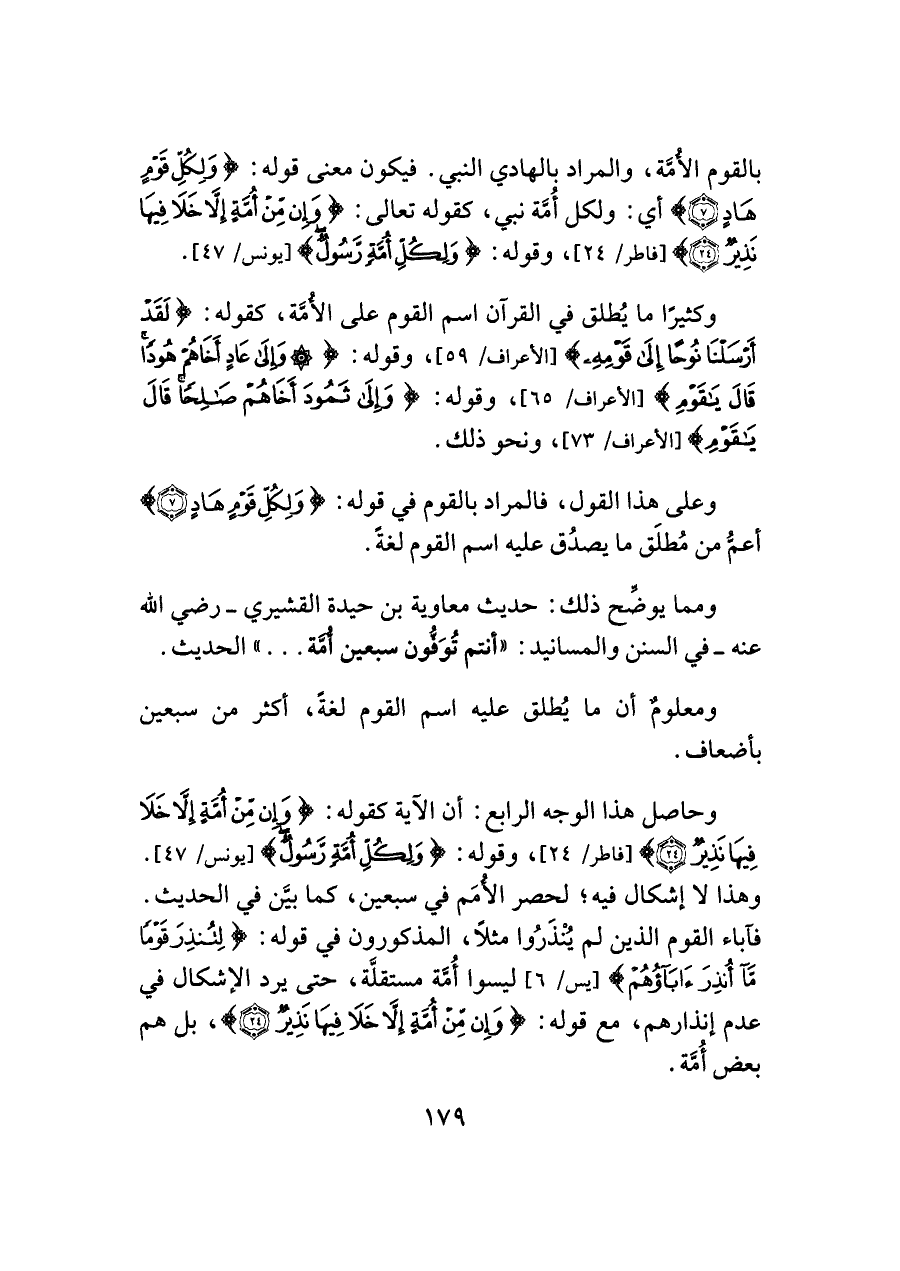 بالقوم الأُمَّة، والمراد بالهادي النبي. فيكون معنى قوله: ﴿ وَلِكُلِّ قَوْمٍ
هَادٍ ۝٧﴾ أي: ولكل أُمَّة نبي، كقوله تعالى: ﴿ وَإِن مِّنْ أُمَّةٍ إِلَّا خَلَا فِيهَا
نَذِيرٌ ۝٢٤﴾ [فاطر/ ٢٤]، وقوله: ﴿ وَلِكُلِّ أُمَّةٍ رَّسُولٌۖ﴾ [يونس/ ٤٧].
وكثيرًا ما يُطلق في القرآن اسم القوم على الأُمَّة، كقوله: ﴿ لَقَدْ
أَرْسَلْنَا نُوحًا إِلَىٰ قَوْمِهِۦ﴾ [الأعراف/ ٥٩]، وقوله: ﴿ ۞ وَإِلَىٰ عَادٍ أَخَاهُمْ هُودًاۚ
قَالَ يَٰقَوْمِ ﴾ [الأعراف/ ٦٥]، وقوله: ﴿ وَإِلَىٰ ثَمُودَ أَخَاهُمْ صَٰلِحًاۚ قَالَ
يَٰقَوْمِ﴾ [الأعراف/ ٧٣]، ونحو ذلك.
وعلى هذا القول، فالمراد بالقوم في قوله: ﴿ وَلِكُلِّ قَوْمٍ هَادٍ ۝٧﴾
أعمُّ من مُطلَق ما يصدُق عليه اسم القوم لغةً.
ومما يوضِّح ذلك: حديث معاوية بن حيدة القشيري ـ رضي الله
عنه ـ في السنن والمسانيد: «أنتم تُوَفُّون سبعين أُمَّة...» الحديث.
ومعلومٌ أن ما يُطلق عليه اسم القوم لغةً، أكثر من سبعين
بأضعاف.
وحاصل هذا الوجه الرابع: أن الآية كقوله: ﴿ وَإِن مِّنْ أُمَّةٍ إِلَّا خَلَا
فِيهَا نَذِيرٌ ۝٢٤﴾ [فاطر/ ٢٤]، وقوله: ﴿ وَلِكُلِّ أُمَّةٍ رَّسُولٌۖ﴾ [يونس/ ٤٧].
وهذا لا إشكال فيه؛ لحصر الأُمَم في سبعين، كما بيَّن في الحديث.
فآباء القوم الذين لم يُنْذَرُوا مثلاً، المذكورون في قوله: ﴿ لِتُنذِرَ قَوْمًا
مَّآ أُنذِرَ ءَابَآؤُهُمْ﴾ [يس/ ٦] ليسوا أُمَّة مستقلَّة، حتى يرد الإشكال في
عدم إنذارهم، مع قوله: ﴿ وَإِن مِّنْ أُمَّةٍ إِلَّا خَلَا فِيهَا نَذِيرٌ ۝٢٤﴾، بل هم
بعض أُمَّة.
١٧٩